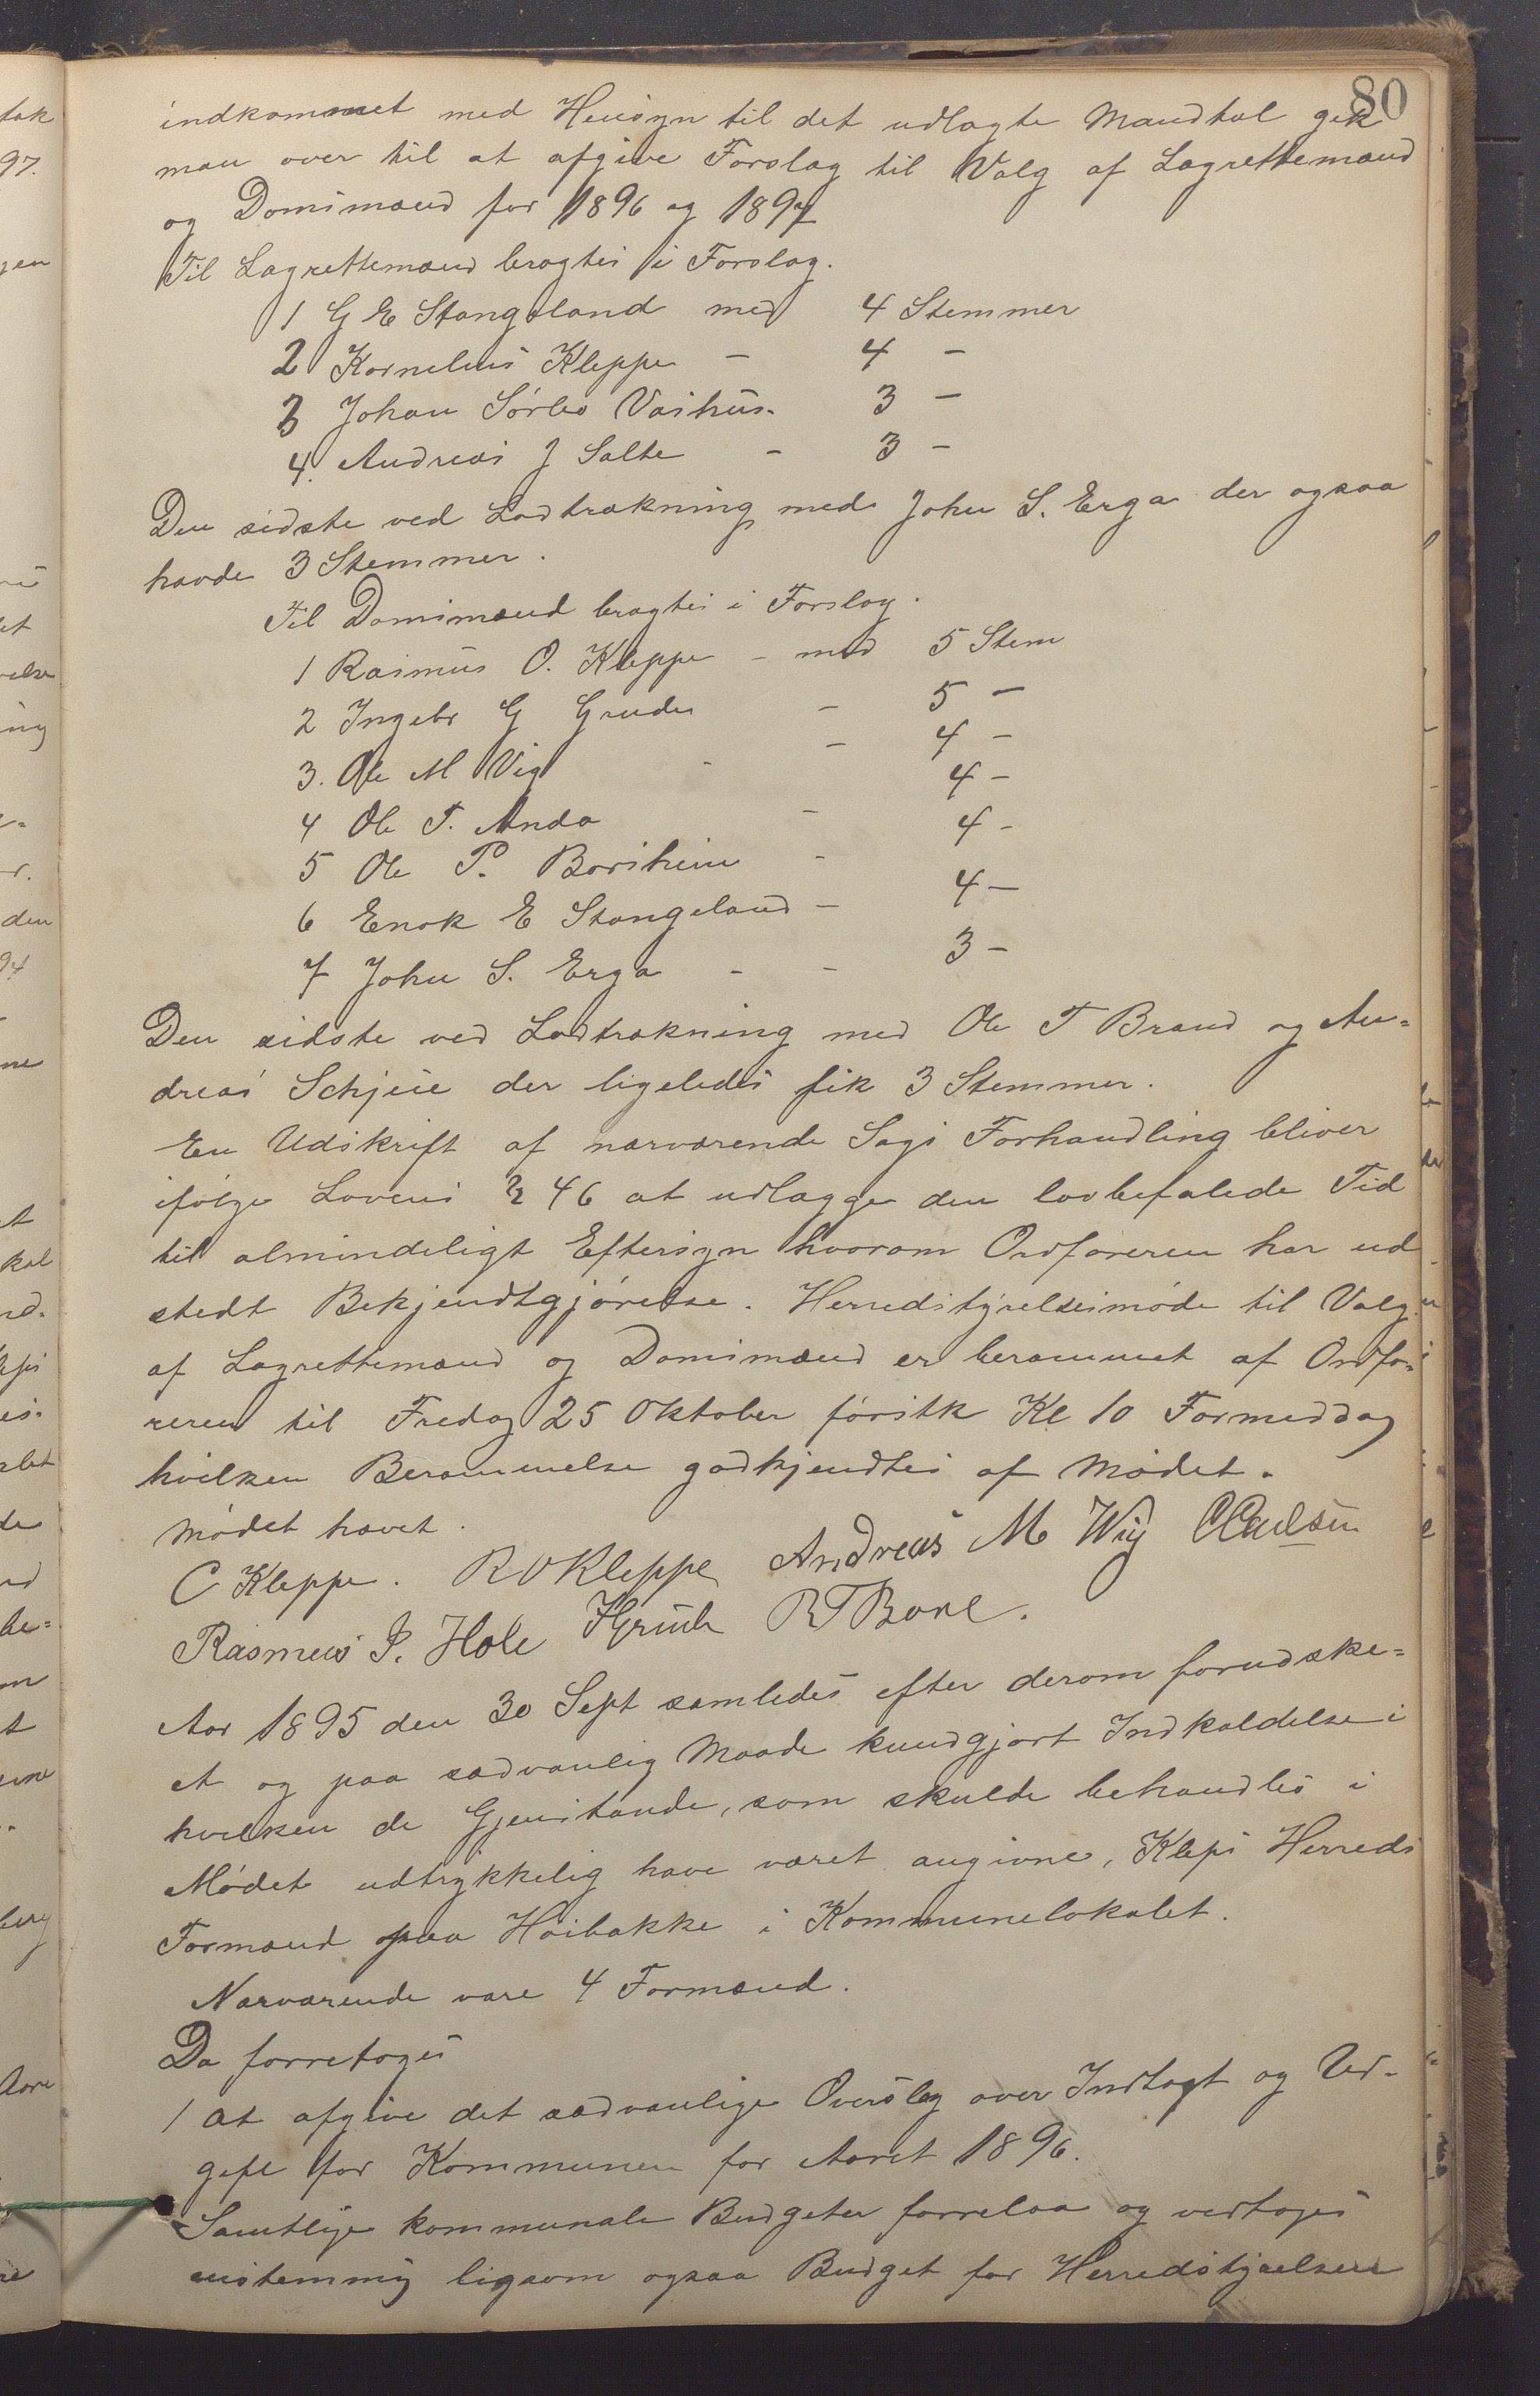 80
indkommet med Hensyn til det udlagte Mandtal gik
man over til at afgive Forslag til Valg af Lagrettemænd
og Domsmænd for 1896 og 1897
Til Lagrettemænd bragtes i Forslag.
1 G E Stangeland med 4 Stemmer
2 Kornelius Kleppe - 4 -
3 Johan Sörbø Vasshus - 3 -
4. Andreas J Salte - 3 -
Den sidste ved Lodtrækning med John S. Erga der ogsaa
havde 3 Stemmer.
Til Domsmænd bragtes i Forslag.
1 Rasmus O. Kleppe - med 5 Stem
2 Ingebr G Grude - 5 -
3. Ole M Vig - - 4 -
4 Ole T. Anda - 4 -
5 Ole P. Borsheim - 4 -
6 Enok E Stangeland - 4 -
7 John S. Erga - - 3 -
Den sidste ved Lodtrækning med Ole T Braud og An=
dreas Schjeie der ligeledes fik 3 Stemmer.
En Udskrift af nærværende Sags Forhandling bliver
ifølge Lovens § 46 at udlægge den lovbefalede Tid
til almindeligt Eftersyn hvorom Ordføreren har ud
stedt Bekjendtgjörelse. Herredstyrelsesmöde til Valg
af Lagrettemænd og Domsmænd er berammet af Ordfø-
reren til Fredag 25 Oktober förstk Kl 10 Formiddag
hvilken Berammelse godkjendtes af Mödet.
Mödet hævet.
C Kleppe. R O Kleppe Andreas M Wig
Rasmus P. Hole R T Bore.
Aar 1895 den 30 Sept samledes efter derom forudske=
et og paa sædvanlig Maade kundgjort Indkaldelse i
hvilken de Gjenstande, som skulde behandles i
Mödet udtrykkelig have været angivne, Kleps Herreds
Formænd paa Höibakke i Kommunelokalet.
Nærværende vare 4 Formænd.
Da forretoges
1 at afgive det sædvanlige Overslag over Indtægt og Ud-
gift for Kommunen for Aaret 1896.
Samtlige kommunale Budgeter forrelaa og vedtoges
enstemmig ligsom ogsaa Budget for